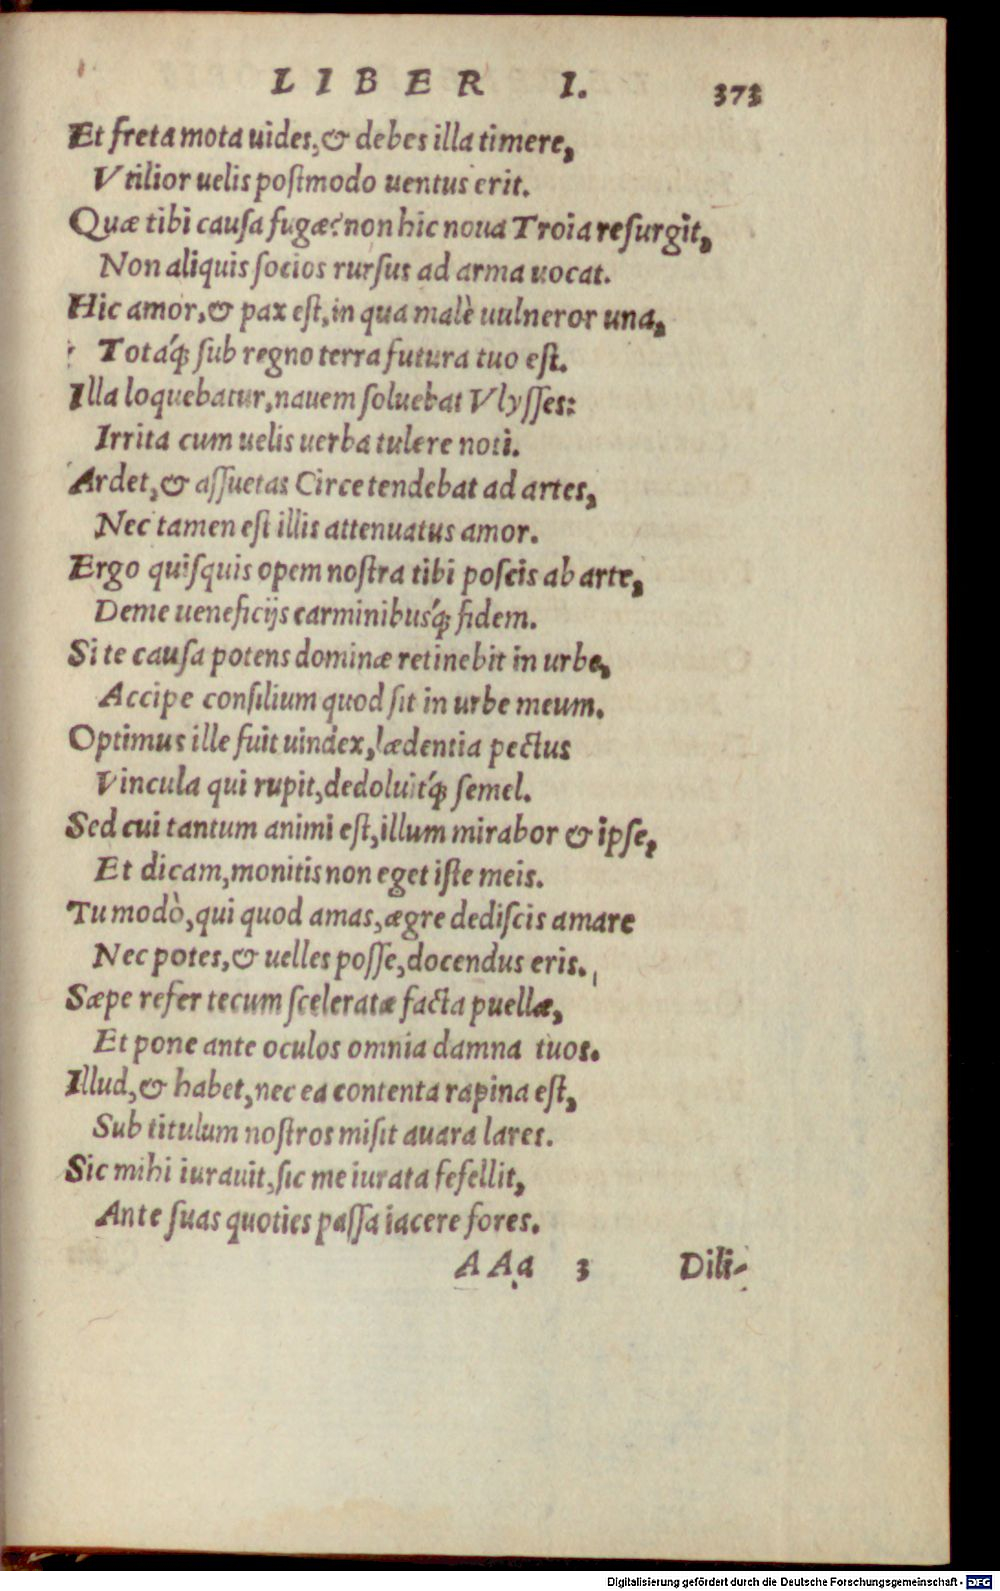 LIBER I. 373
Et freta mota uides, & debes illa timere,
Vtilior uelis postmodo uentus erit.
Quæ tibi causa fugæ? non hic noua Troia resurgit,
Non aliquis socios rursus ad arma uocat.
Hic amor, & pax est, in qua malè uulneror una,
Totaq́; sub regno terra futura tuo est.
Illa loquebatur, nauem soluebat Vlysses:
Irrita cum uelis uerba tulere noti.
Ardet, & assuetas Circe tendebat ad artes,
Nec tamen est illis attenuatus amor.
Ergo quisquis opem nostra tibi poscis ab arte,
Deme ueneficijs carminibusq́; fidem.
Si te causa potens dominæ retinebit in urbe,
Accipe consilium quod sit in urbe meum.
Optimus ille fuit uindex, lædentia pectus
Vincula qui rupit, dedoluitq́; semel.
Sed cui tantum animi est, illum mirabor & ipse,
Et dicam, monitis non eget iste meis.
Tu modò, qui quod amas, ægre dediscis amare
Nec potes, & uelles posse, docendus eris.
Sæpe refer tecum sceleratæ facta puellæ,
Et pone ante oculos omnia damna tuos.
Illud, & habet, nec ea contenta rapina est,
Sub titulum nostros misit auara lares.
Sic mihi iurauit, sic me iurata fefellit,
Ante suas quoties passa iacere fores.
AAa 3 Dili-
Digitalisierung gefördert durch die Deutsche Forschungsgemeinschaft - DFG